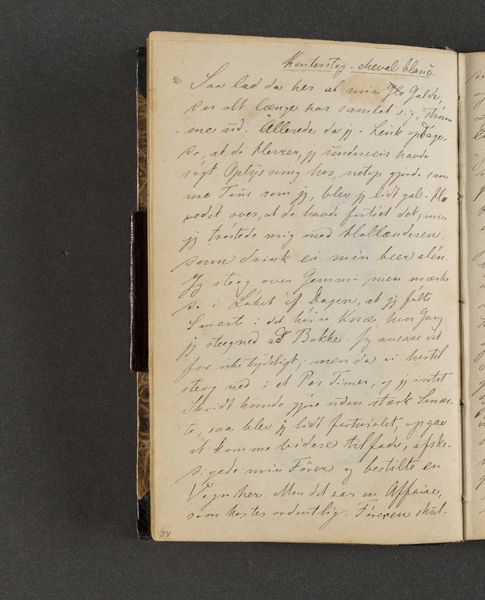 Kandersteg. cheval blanc.
Saa lad da her al min Galde,
som alt længe har samlet sig, strøm-
me ud. Allerede da jeg i Leuk opdage-
de, at de Herrer, jeg underveis havde
søgt Oplysning hos, netop gjorde sam-
me Tour som jeg, blev jeg lidt gal i Ho-
vedet over, at de havde fortiet det, men
jeg trøstede mig med Hollænderen,
som drak en min beer alén.
Jeg steeg over Gemmi, men mærke-
de i Løbet af Dagen, at jeg følte
Smerte i det høire Knæ, hver Gang
jeg steeg ned ad Bakke. Jeg ansaae det
for ubetydeligt; men da vi hertil
steeg ned i et Par Timer, og jeg intet
Skridt kunde gjøre uden stærk Smer-
te, saa blev jeg lidt fortvivlet, opgav
at komme videre tilfods, afske-
digede min Fører og bestilte en
Vogn her. Men det var en Affaire,
som kostes ordentlig. Føreren skul-
24